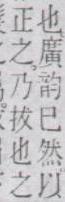 也廣韵已然以
正之乃拔也之